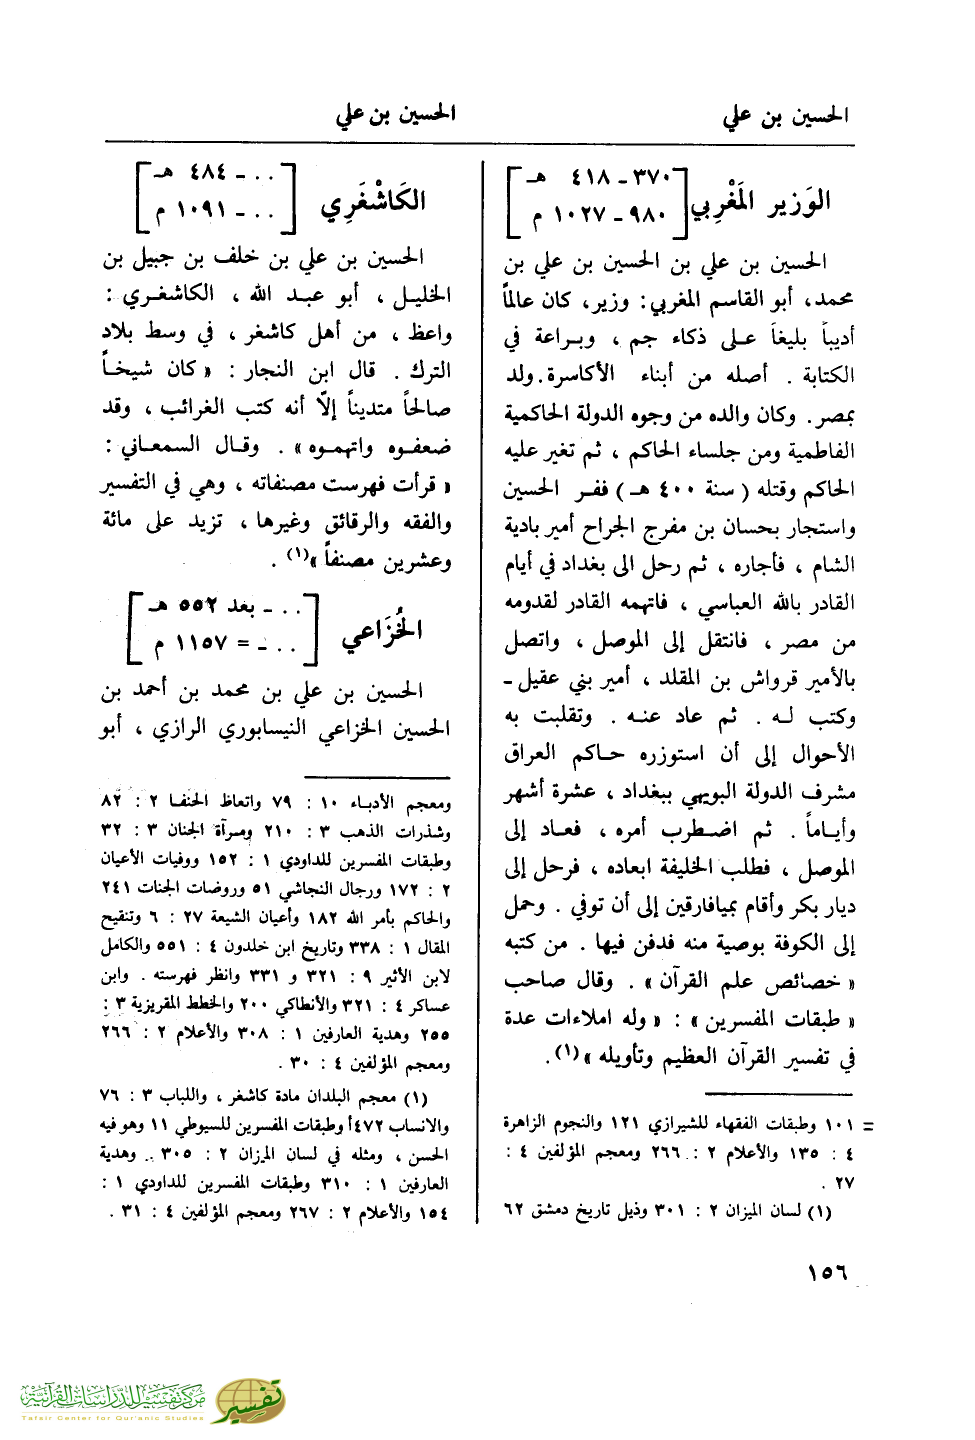 الحسين بن علي
الحسين بن علي
الوَزير المَغْرِبي
٣٧٠ ـ ٤١٨ هـ
٩٨٠ ـ ١٠٢٧ م
الحسين بن علي بن الحسين بن علي بن
محمد، أبو القاسم المغربي: وزير، كان عالماً
أديباً بليغاً على ذكاء جم ، وبراعة في
الكتابة . أصله من أبناء الأكاسرة. ولد
بمصر. وكان والده من وجوه الدولة الحاكمية
الفاطمية ومن جلساء الحاكم ، ثم تغير عليه
الحاكم وقتله ( سنة ٤٠٠ هـ ) ففر الحسين
واستجار بحسان بن مفرج الجراح أمير بادية
الشام ، فأجاره ، ثم رحل الى بغداد في أيام
القادر بالله العباسي ، فاتهمه القادر لقدومه
من مصر ، فانتقل إلى الموصل ، واتصل
بالأمير قرواش بن المقلد ، أمير بني عقيل ـ
وكتب لـه . ثم عاد عنه . وتقلبت به
الأحوال إلى أن استوزره حاكم العراق
مشرف الدولة البويهي ببغداد ، عشرة أشهر
وأياماً . ثم اضطرب أمره ، فعاد إلى
الموصل ، فطلب الخليفة ابعاده ، فرحل إلى
ديار بكر وأقام بميافارقين إلى أن توفي . وحمل
إلى الكوفة بوصية منه فدفن فيها . من كتبه
« خصائص علم القرآن » . وقال صاحب
« طبقات المفسرين » : « وله املاءات عدة
في تفسير القرآن العظيم وتأويله »(١).
= ١٠١ وطبقات الفقهاء للشيرازي ١٢١ والنجوم الزاهرة
٤ : ١٣٥ والأعلام ٢ : ٢٦٦ ومعجم المؤلفين ٤ :
٢٧ .
(١) لسان الميزان ٢ : ٣٠١ وذيل تاريخ دمشق ٦٢
الكَاشْغَرِي
. . ـ ٤٨٤ هـ
. . ـ ١٠٩١ م
الحسين بن علي بن خلف بن جبيل بن
الخليل ، أبو عبد الله ، الكاشغري :
واعظ ، من أهل كاشغر ، في وسط بلاد
الترك . قال ابن النجار : « كان شيخاً
صالحاً متديناً إلّا أنه كتب الغرائب ، وقد
ضعفوه واتهموه » . وقال السمعاني :
« قرأت فهرست مصنفاته ، وهي في التفسير
والفقه والرقائق وغيرها ، تزيد على مائة
وعشرين مصنفاً »(١) .
الخُزَاعي
. . ـ بعد ٥٥٢ هـ
. . ـ = ١١٥٧ م
الحسين بن علي بن محمد بن أحمد بن
الحسين الخزاعي النيسابوري الرازي ، أبو
ومعجم الأدباء ١٠ : ٧٩ واتعاظ الحنفا ٢ : ٨٢
وشذرات الذهب ٣ : ٢١٠ ومرآة الجنان ٣ : ٣٢
وطبقات المفسرين للداودي ١ : ١٥٢ ووفيات الأعيان
٢ : ١٧٢ ورجال النجاشي ٥١ وروضات الجنات ٢٤١
والحاكم بأمر الله ١٨٢ وأعيان الشيعة ٢٧ : ٦ وتنقيح
المقال ١ : ٣٣٨ وتاريخ ابن خلدون ٤ : ٥٥١ والكامل
لابن الأثير ٩ : ٣٢١ و ٣٣١ وانظر فهرسته . وابن
عساكر ٤ : ٣٢١ والأنطاكي ٢٠٠ والخطط المقريزية ٣ :
٢٥٥ وهدية العارفين ١ : ٣٠٨ والأعلام ٢ : ٢٦٦
ومعجم المؤلفين ٤ : ٣٠ .
(١) معجم البلدان مادة كاشغر ، واللباب ٣ : ٧٦
والانساب ٤٧٢أ وطبقات المفسرين للسيوطي ١١ وهو فيه
الحسن ، ومثله في لسان الميزان ٢ : ٣٠٥ . وهدية
العارفين ١ : ٣١٠ وطبقات المفسرين للداودي ١ :
١٥٤ والأعلام ٢ : ٢٦٧ ومعجم المؤلفين ٤ : ٣١ .
١٥٦
مركز تفسير للدراسات القرآنية
Tafsir Center for Qur'anic Studies
تفسير